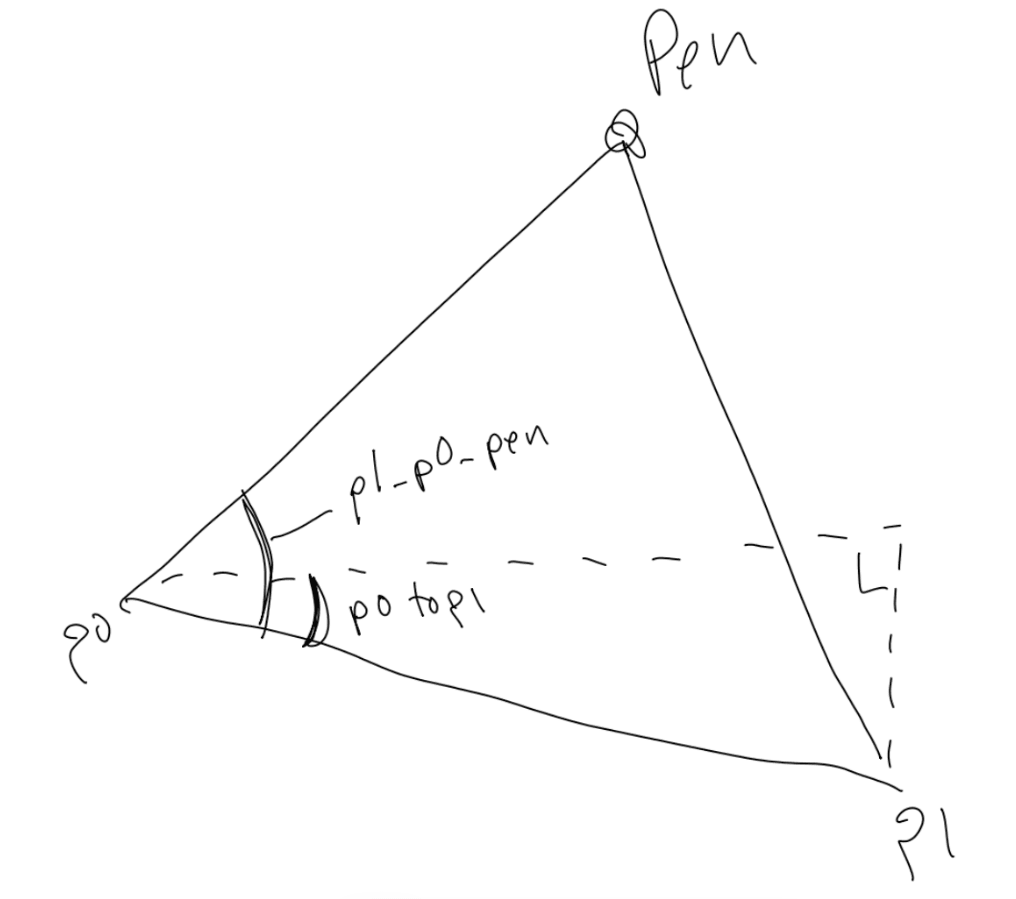 Pen
p1-p0-pen
p0 top1
p0
p1